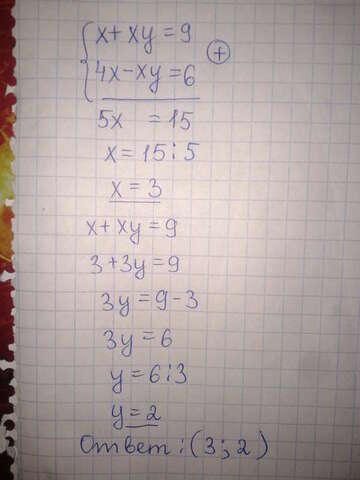 x+xy=9
4x-xy=6 +
5x =15
x=15:5
x=3
x+xy=9
3+3y=9
3y=9-3
3y=6
y=6:3
y=2
Ответ:(3;2)